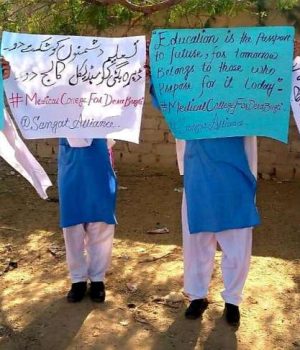 تعلیم دشمنوں کو شکست دو
ڈیرہ بگٹی کو میڈیکل کالج دو۔
#MedicalCollegeForDeraBugti
@SangatAlliance
"Education is the passport
to future, for tomorrow
Belongs to those who
Prepare for it today"
#MedicalCollegeForDeraBugti
Sangat Alliance